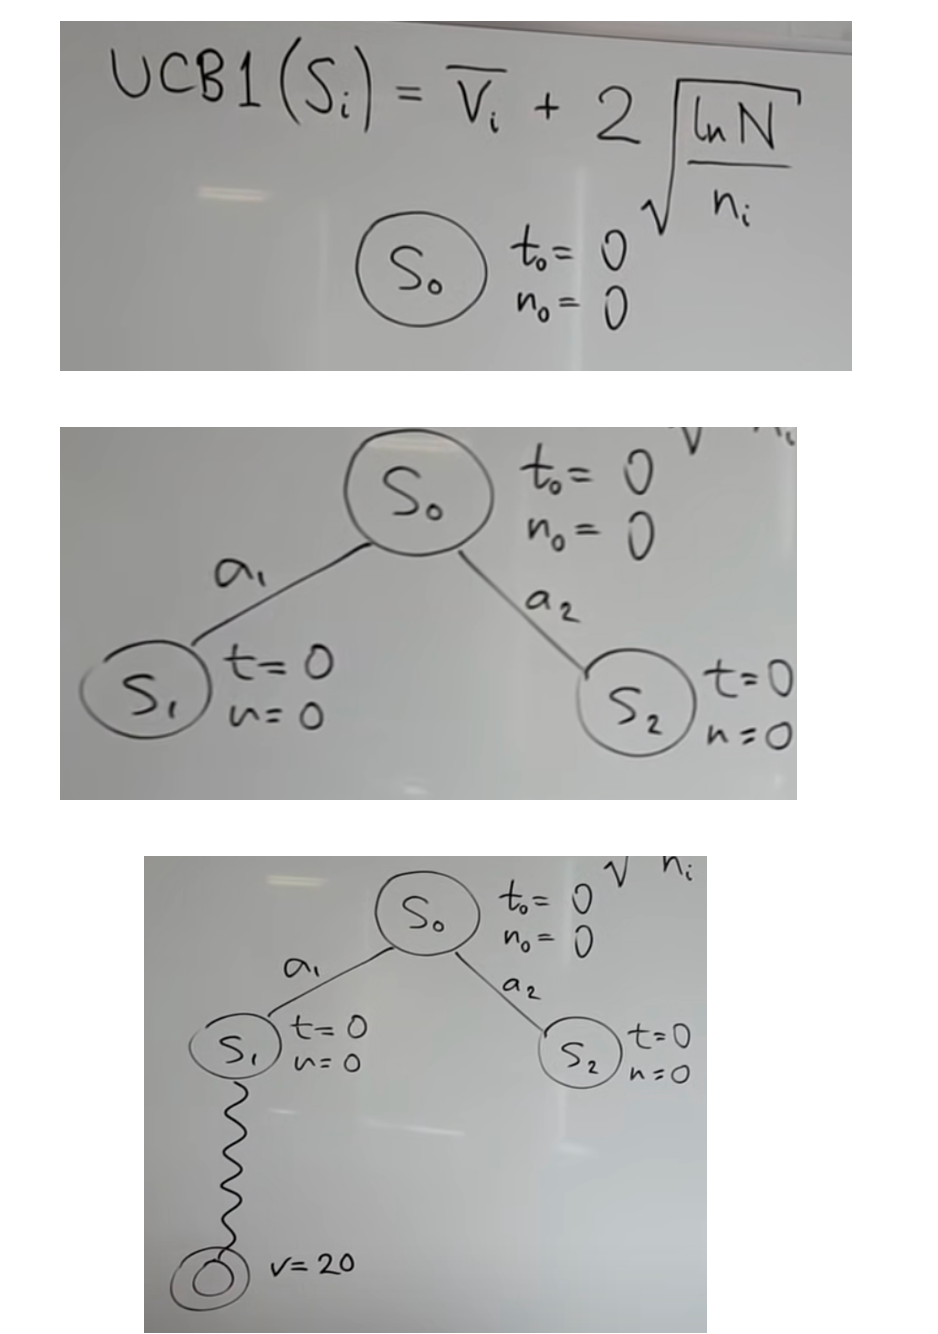 UCB1(Sᵢ) = V̅ᵢ + 2 √(ln N / nᵢ)
S₀ t₀ = 0
n₀ = 0
S₀ t₀ = 0
n₀ = 0
a₁ a₂
S₁ t = 0
n = 0
S₂ t = 0
n = 0
S₀ t₀ = 0 √ nᵢ
n₀ = 0
a₁ a₂
S₁ t = 0
n = 0
S₂ t = 0
n = 0
v = 20